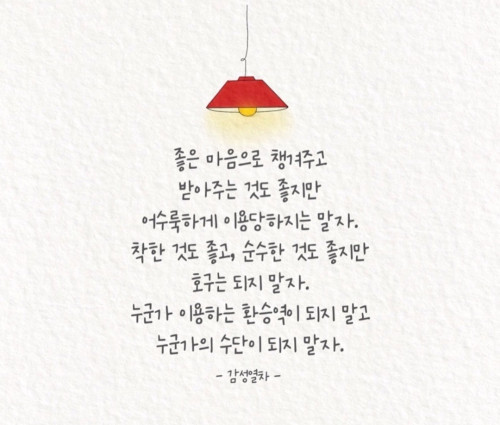 좋은 마음으로 챙겨주고
받아주는 것도 좋지만
어수룩하게 이용당하지는 말자.
착한 것도 좋고, 순수한 것도 좋지만
호구는 되지 말자.
누군가 이용하는 환승역이 되지 말고
누군가의 수단이 되지 말자.
- 감성열차 -